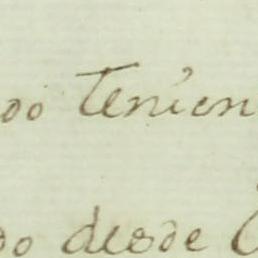 do Tenien
do desde